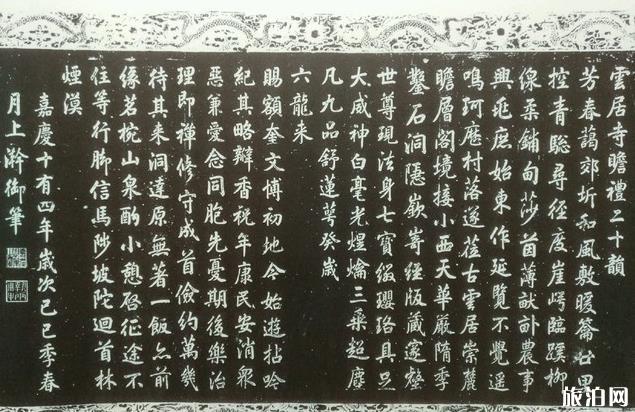 雲居寺瞻禮二十韻
芳春藹郊圻和風敷暖
控青驄尋徑度崖崿臨蹊柳
線柔鋪甸莎茵薄畎畝農事
興庶始東作延覽不覺遥
鳴珂歷村落遂莅古雲居崇麓
瞻層閣境接小西天華嚴隋季
鑿石洞隱嶔嵜經版藏邃壑
世尊現法身七寶綴瓔珞具足
大威神白毫光煜爚三乗超塵
凡九品舒蓮萼癸歲
六龍来
賜額奎文博初地今始遊拈吟
紀其略辦香祝年康民安消衆
惡兼愛念同胞先憂期後樂治
理即禪修守成首儉約萬幾
待其来洞達原無著一飯亦前
緣茗椀山泉酌小憩啓征途不
住等行腳信馬陟坡陀迴首林
煙漠
嘉慶十有四年歲次己巳季春
月上澣御筆
旅泊网